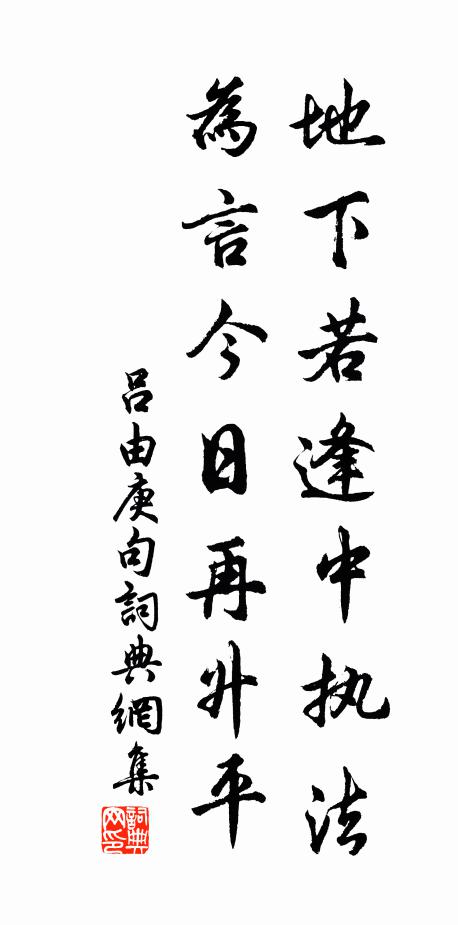 地下若逢中执法
為言今日再升平
吕由庚句詞典網集
詞典网印